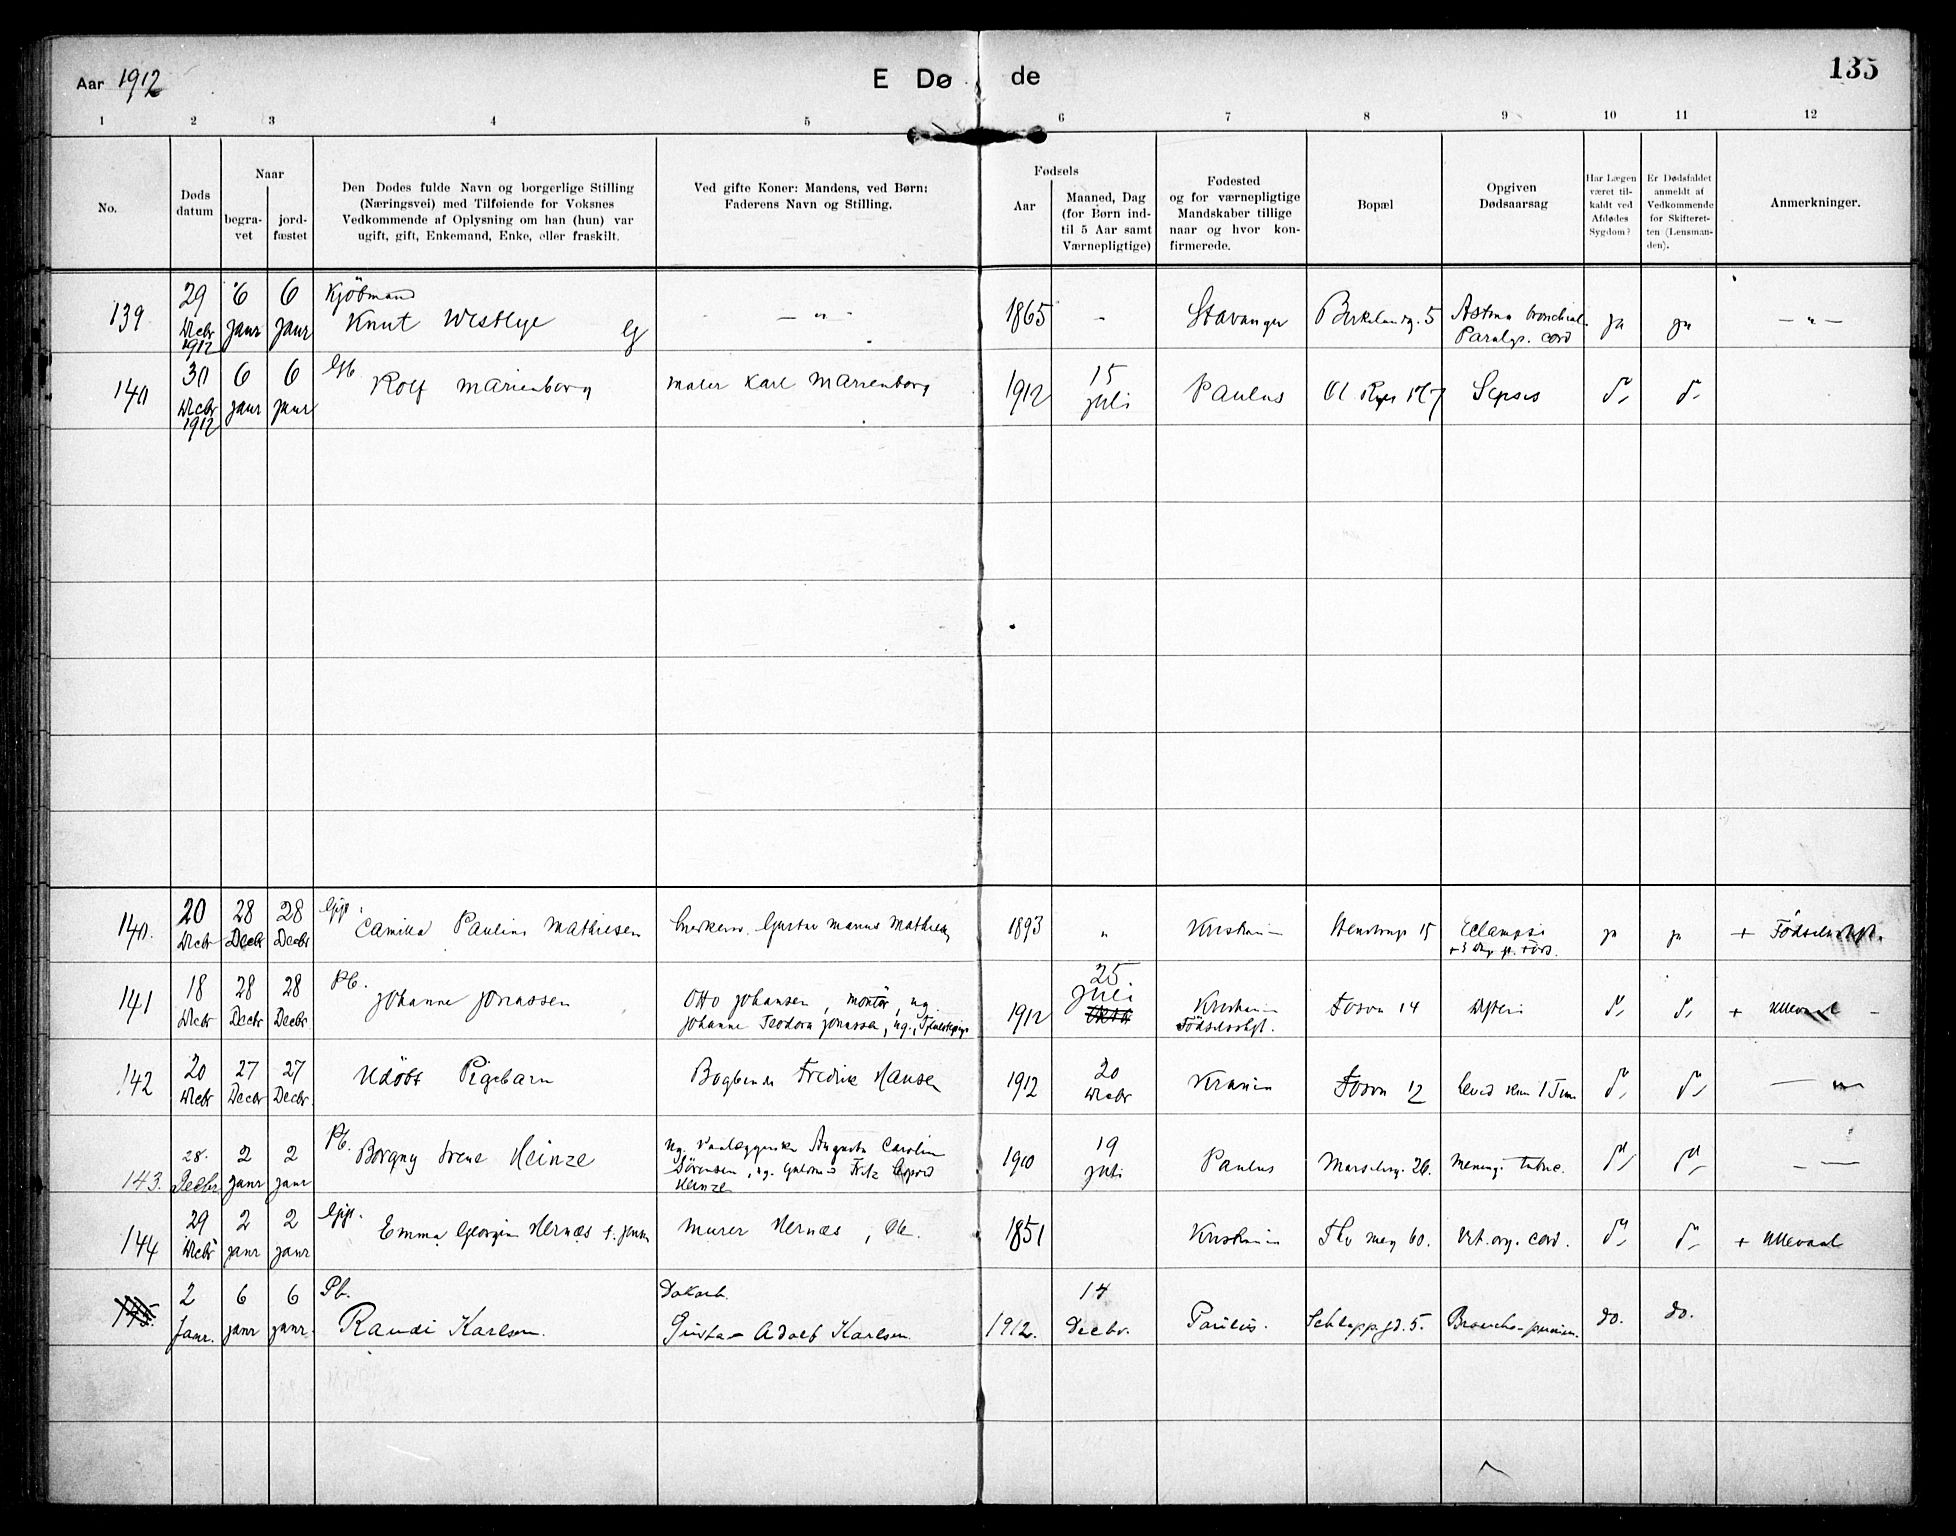 Aar 1912
E Dø de
135
1 2 3 4 5 6 7 8 9 10 11 12
No.
Døds
datum
Naar
begra-
vet
jord-
fæstet
Den Dødes fulde Navn og borgerlige Stilling
(Næringsvei) med Tilføiende for Voksnes
Vedkommende af Oplysning om han (hun) var
ugift, gift, Enkemand, Enke, eller fraskilt.
Ved gifte Koner: Mandens, ved Børn:
Faderens Navn og Stilling.
Fødsels
Aar
Maaned, Dag
(for Børn ind-
til 5 Aar samt
Værnepligtige)
Fødested
og for værnepligtige
Mandskaber tillige
naar og hvor kon-
firmerede.
Bopæl
Opgiven
Dødsaarsag
Har Lægen
været til-
kaldt ved
Afdødes
Sygdom?
Er Dødsfaldet
anmeldt af
Vedkommende
for Skifteret-
ten (Lensman-
den).
Anmerkninger.
139
29 Decbr 1912
6 janr
6 janr
Kjöbmand
Knut Westlye
g
1865
Stavanger
Birkelundg. 5
Astma bronchial.
Paralys. cord
ja
ja
140
30 Decbr 1912
6 janr
6 janr
Gb.
Rolf Marienborg
Maler Karl Marienborg
1912
15 juli
Paulus
Ol. Ryes Pl 7
Sepsis
do
do
140.
20 Decbr
28 Decbr
28 Decbr
Gift
Camilla Pauline Mathiesen
Gustav Marius Mathies
1893
"
Kristiania
Stenstrupg 15
Eclampsi
ja
ja
+ Födselsstift.
141
18 Decbr
28 Decbr
28 Decbr
Pb.
Johanne Jonassen
Otto Johansen, montör, ug.
Johanne Teodora Jonassen, ug.
1912
25 juli
Kristiania
Födselsstift.
Fossv 14
Difteri
do
do
+ Ullevaal
142
20 Decbr
27 Decbr
27 Decbr
Udöbt Pigebarn
Bogbinder Fredrik Hansen
1912
20 Decbr
Krania
Fossv 12
Leved kun 1 Time
do
do
143.
28. Decbr
2 janr
2 janr
Pb.
Borgny Irene Heinze
Ug. Augusta Caroline
Sörensen, ug. Fritz
Heinze
1910
19 juli
Paulus
Marselisg. 26.
Mening. tuberc.
do
do
144
29 Decbr
2 janr
2 janr
Gift.
Emma Georgine Hernæs f. Jensen
Murer Hernæs
1851
Kristiania
Thv Mey 60.
Vit. org. cord.
do
do
+ Ullevaal
145.
2 Janr.
6 janr
6 janr.
Pb.
Randi Karlsen.
Gustav Adolf Karlsen.
1912.
14 Decbr.
Paulus.
Schleppegd. 5.
Broncho-pneum.
do.
do.